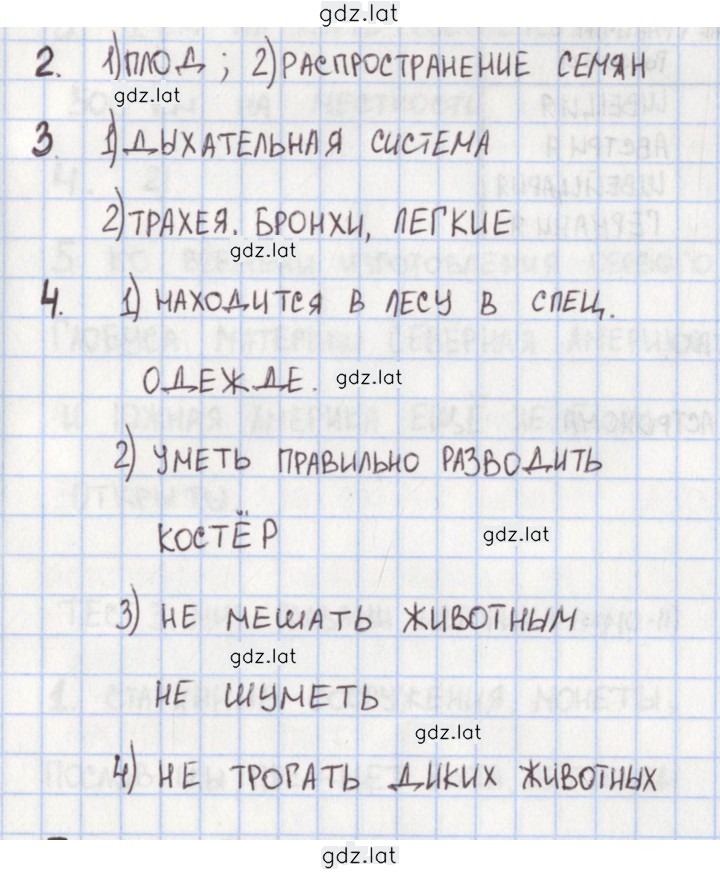 gdz.lat
2. 1) ПЛОД; 2) РАСПРОСТРАНЕНИЕ СЕМЯН
gdz.lat
3. 1) ДЫХАТЕЛЬНАЯ СИСТЕМА
2) ТРАХЕЯ. БРОНХИ, ЛЕГКИЕ
gdz.lat
4. 1) НАХОДИТСЯ В ЛЕСУ В СПЕЦ.
ОДЕЖДЕ. gdz.lat
2) УМЕТЬ ПРАВИЛЬНО РАЗВОДИТЬ
КОСТЁР gdz.lat
3) НЕ МЕШАТЬ ЖИВОТНЫМ
gdz.lat
НЕ ШУМЕТЬ
gdz.lat
4) НЕ ТРОГАТЬ ДИКИХ ЖИВОТНЫХ
gdz.lat